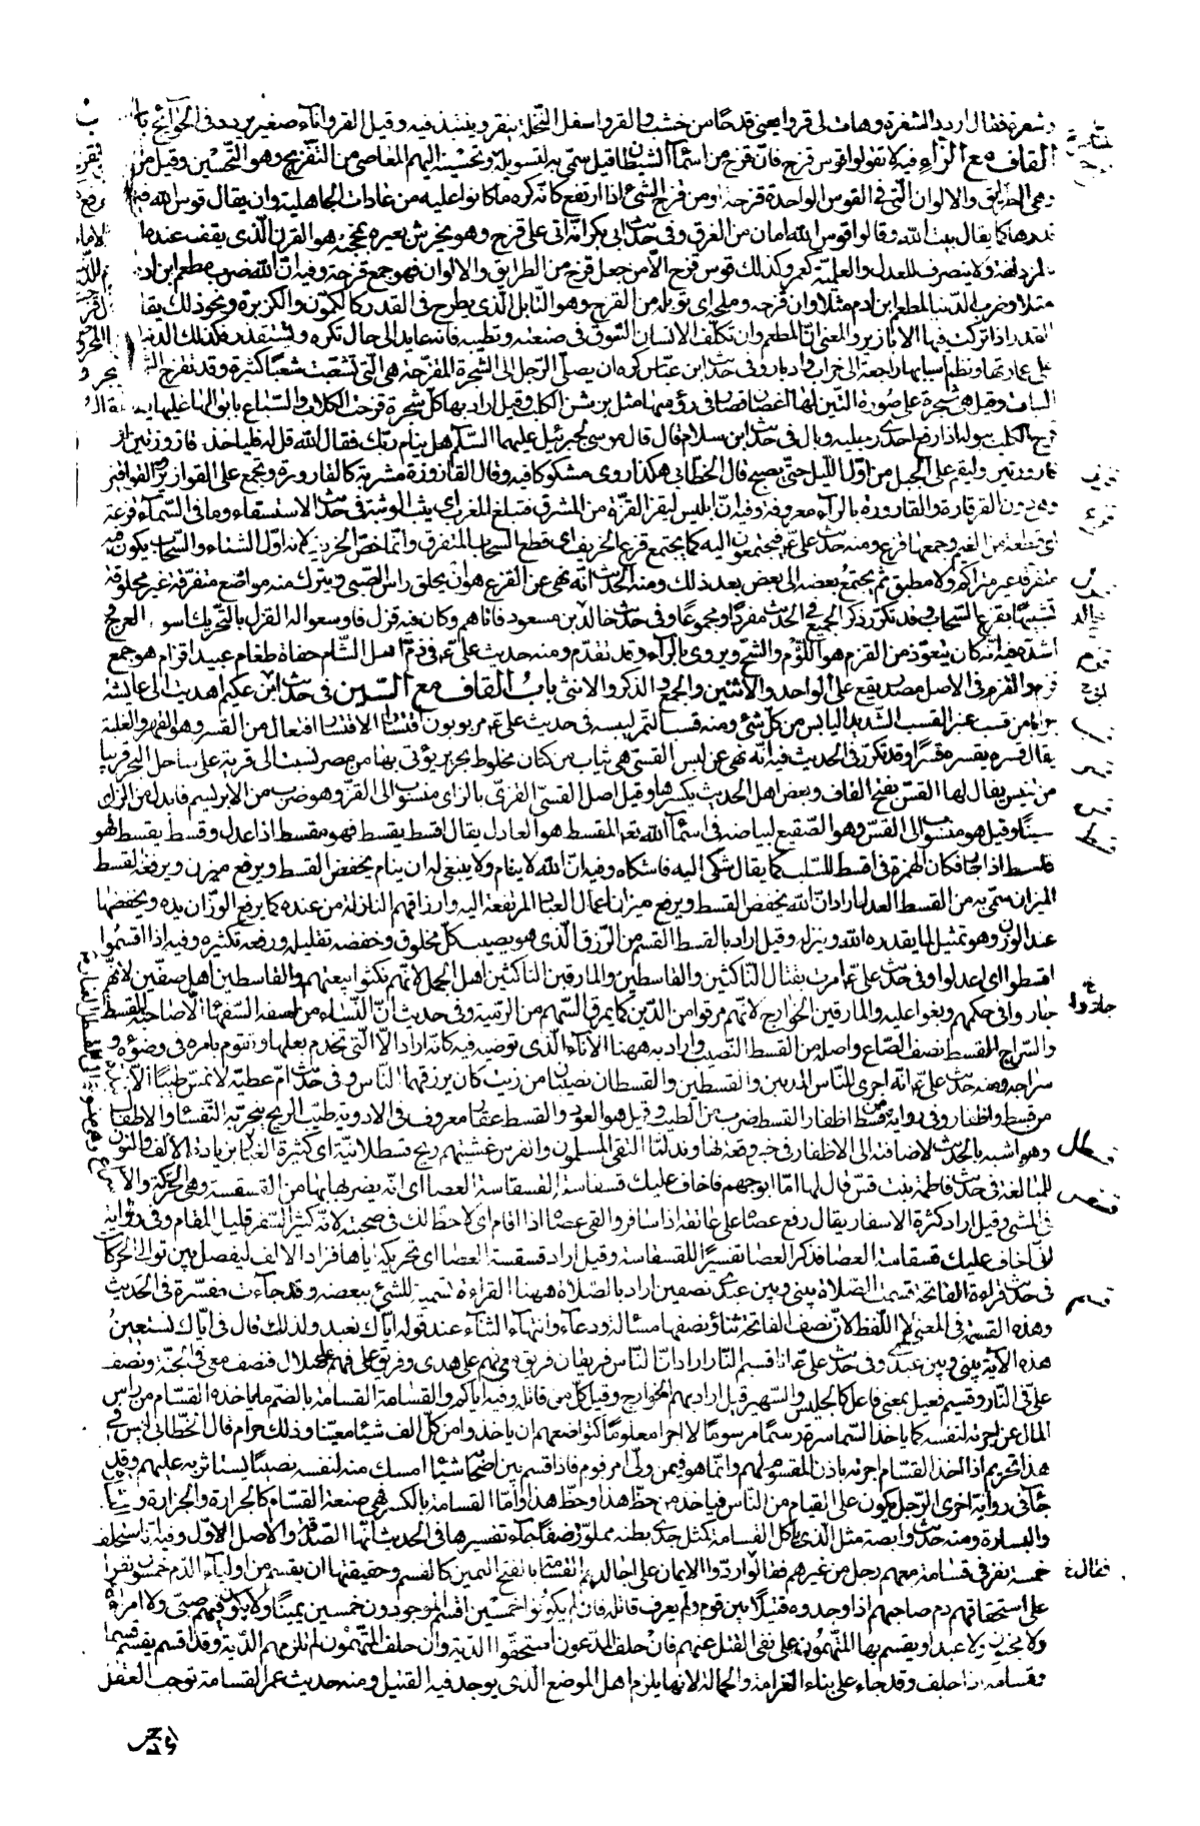 وشعرة فقال اريد الشغرة وهات لى قروا يعنى قدحا من خشب والقرو اسفل النخلة ينقر وينبذ فيه وقيل القرو اناء صغير يردد فى الحوائج
القاف مع الزاء فيه لا تقولوا قوس قزح فان قزح من اسماء الشيطان قيل سمى به لتسويله وتحسينه اليهم المعاصى من التقزيح وهو التحسين وقيل من
وهى الطرايق والالوان التى فى القوس الواحدة قزحة ومن قزح الشئ اذا ارتفع كانه كره ما كانوا عليه من عادات الجاهلية وان يقال قوس الله
قدرها كما يقال بيت الله وقالوا قوس الله امان من الغرق وفى حديث ابى بكر انه اتى على قزح وهو يخرش بعيره بمحجنه هو القرن الذى يقف عنده
المزدلفة ولا ينصرف للعدل والعلمية كعمر وكذلك قوس قزح الا من جعل قزح من الطرايق والالوان فهو جمع قزحة وفيه ان الله ضرب مطعم ابن ادم
مثلا وضرب الدنيا لمطعم ابن ادم مثلا وان قزحه وملحه اى توبله من القزح وهو التابل الذى يطرح فى القدر كالكمون والكزبرة ونحو ذلك يقال
القدر اذا تركت فيها الابازير والمعنى ان المطعم وان تكلف الانسان التنوق فى صنعته وتطييبه فانه عايد الى حال تكره وتستقذر فكذلك الدنيا
على عمارتها ونظم اسبابها راجعة الى خراب وادبار وفى حديث ابن عباس كره ان يصلى الرجل الى الشجرة المقزحة هى التى تشعبت شعبا كثيرة وقد تقزح الشجر
النبات وقيل هى شجرة على صورة التين لها اغصان قصار فى رؤسها مثل برثن الكلب وقيل اراد بها كل شجرة قزحت الكلاب والسباع بابوالها عليها يقال
قزح الكلب ببوله اذا رفع احدى رجليه وبال فى حديث ابن سلام قال قال موسى لجبرئيل عليهما السلام هل ينام ربك فقال الله قل له فلياخذ قازوزتين او
قارورتين وليقم على الجبل من اول الليل حتى يصبح قال الخطابى هكذا روى مشكوكا فيه وقال القازوزة مشربة كالقارورة وتجمع على القوازيز والقواقيز
وهى دون القرقارة والقارورة بالراء معروفة وفيه ان ابليس ليقز القزة من المشرق فتبلغ المغرب اى يثب الوثبة فى حديث الاستسقاء وما فى السماء قزعة
اى قطعة من الغيم وجمعها قزع ومنه حديث على ع فيجتمعون اليه كما يجتمع قزع الخريف اى قطع السحاب المتفرق وانما خص الخريف لانه اول الشتاء والسحاب يكون فيه
متفرقا غير متراكم ولا مطبق ثم يجتمع بعضه الى بعض بعد ذلك ومنه الحديث انه نهى عن القزع هو ان يحلق راس الصبى ويترك منه مواضع متفرقة غير محلوقة
تشبيها بقزع السحاب وقد تكرر ذكر الجميع فى الحديث مفردا ومجموعا وفى حديث خالد بن مسعود فاتاهم وكان فيه قزل فاوسعوا له القزل بالتحريك اسوء العرج
اشده فيه انه كان يتعوذ من القزم هو اللؤم والشح ويروى بالراء وقد تقدم ومنه حديث على ع فى ذم اهل الشام جفاة طغام عبيد اقزام هو جمع
قزم والقزم فى الاصل مصدر يقع على الواحد والاثنين والجمع والذكر والانثى باب القاف مع السين فى حديث ابن عكيم اهديت الى عايشة
جرابا من قسب عنبر القسب الشديد اليابس من كل شئ ومنه قسب التمر ليبسه فى حديث على ع مربوبون اقتسارا الاقتسار افتعال من القسر وهو القهر والغلبة
يقال قسره يقسره قسرا وقد تكرر فى الحديث فيه انه نهى عن لبس القسى هى ثياب من كتان مخلوط بحرير يؤتى بها من مصر نسبت الى قرية على ساحل البحر قريبا
من تنيس يقال لها القس بفتح القاف وبعض اهل الحديث يكسرها وقيل اصل القسى القزى بالزاى منسوب الى القز وهو ضرب من الابريسم فابدل من الزاى
سينا وقيل هو منسوب الى القس وهو الصقيع لبياضه فى اسماء الله تعالى المقسط هو العادل يقال اقسط يقسط فهو مقسط اذا عدل وقسط يقسط فهو
قاسط اذا جار فكان الهمزة فى اقسط للسلب كما يقال شكى اليه فاشكاه وفيه ان الله لا ينام ولا ينبغى له ان ينام يخفض القسط ويرفعه القسط
الميزان سمى به من القسط العدل اراد ان الله يخفض القسط ويرفع ميزان اعمال العباد المرتفعة اليه وارزاقهم النازلة من عنده كما يرفع الوزان يده ويخفضها
عند الوزن وهو تمثيل لما يقدره الله وينزله وقيل اراد بالقسط القسم من الرزق الذى هو يصيب كل مخلوق وخفضه تقليله ورفعه تكثيره وفيه اذا اقسموا
اقسطوا اى اعدلوا وفى حديث على ع امرت بقتال الناكثين والقاسطين والمارقين الناكثين اهل الجمل لانهم نكثوا بيعتهم والقاسطين اهل صفين لانهم
جاروا فى حكمهم وبغوا عليه والمارقين الخوارج لانهم مرقوا من الدين كما يمرق السهم من الرمية وفى حديث ان النساء من اسفه السفهاء الا صاحبة القسط
والسراج القسط نصف الصاع واصله من القسط النصيب واراد به ههنا الاناء الذى توضيه فيه كانه اراد الا التى تخدم بعلها وتقوم بامره فى وضوئه و
سراجه ومنه حديث على ع انه اجرى للناس المديين والقسطين والقسطان نصيبان من زيت كان يرزقهما الناس وفى حديث ام عطية لا تمس طيبا الا نبذة
من قسط واظفار وفى رواية من قسط اظفار القسط ضرب من الطيب وقيل هو العود والقسط عقار معروف فى الادوية طيب الريح يبخر به النفساء والاطفال
وهو اشبه بالحديث لاضافته الى الاظفار فى خبر وقعة نهاوند لما التقى المسلمون والفرس غشيتهم ريح قسطلانية اى كثيرة الغبار بزيادة الالف والنون
للمبالغة فى حديث فاطمة بنت قيس قال لها اما ابو جهم فاخاف عليك قسقاسته القسقاسة العصا اى انه يضربها بها من القسقسة وهى الحركة والاسراع
فى المشى وقيل اراد كثرة الاسفار يقال رفع عصاه على عاتقه اذا سافر والقى عصاه اذا اقام اى لا حظ لك فى صحبته لانه كثير السفر قليل المقام وفى رواية
انى اخاف عليك قسقاسته العصا فذكر العصا تفسيرا للقسقاسة وقيل اراد قسقسة العصا اى تحريكه اياها فزاد الالف ليفصل بين توالى الحركات
فى حديث قراءة الفاتحة قسمت الصلاة بينى وبين عبدى نصفين اراد بالصلاة ههنا القراءة تسمية للشئ ببعضه وقد جاءت مفسرة فى الحديث
وهذه القسمة فى المعنى لا اللفظ لان نصف الفاتحة ثناء ونصفها مسئلة ودعاء وانتهاء الثناء عند قوله اياك نعبد ولذلك قال فى اياك نستعين
هذه الاية بينى وبين عبدى وفى حديث على ع انا قسيم النار اراد ان الناس فريقان فريق معى فهم على هدى وفريق على فهم على ضلال فنصف معى فى الجنة ونصف
على فى النار وقسيم فعيل بمعنى فاعل كالجليس والسمير قيل اراد بهم الخوارج وقيل كل من قاتله وفيه اياكم والقسامة القسامة بالضم ما ياخذه القسام من راس
المال عن اجرته لنفسه كما ياخذ السماسرة رسما مرسوما لا اجرا معلوما كتواضعهم ان ياخذوا من كل الف شيئا معينا وذلك حرام قال الخطابى ليس فى
هذا تحريم اذا اخذ القسام اجرته باذن المقسوم لهم وانما هو فيمن ولى امر قوم فاذا قسم بين اصحابه شيئا امسك منه لنفسه نصيبا يستاثر به عليهم وقد
جاء فى رواية اخرى الرجل يكون على الفئام من الناس فياخذ من حظ هذا وحظ هذا واما القسامة بالكسر فهى صنعة القسام كالجزارة والجزارة
والبسارة ومنه حديث وابصة مثل الذى ياكل القسامة كمثل جدى بطنه مملو رضفا جاء تفسيرها فى الحديث انها الصدقة والاصل الاول وفيه انه استحلف
خمسة نفر فى قسامة معهم رجل من غيرهم فقال ردوا الايمان على اجالدهم القسامة بالفتح اليمين كالقسم وحقيقتها ان يقسم من اولياء الدم خمسون نفرا
على استحقاقهم دم صاحبهم اذا وجدوه قتيلا بين قوم ولم يعرف قاتله فان لم يكونوا خمسين اقسم الموجودون خمسين يمينا ولا يكون فيهم صبى ولا امراة
ولا مجنون ولا عبد او يقسم بها المتهمون على نفى القتل عنهم فان حلف المدعون استحقوا الدية وان حلف المتهمون لم تلزمهم الدية وقد اقسم يقسم قسما
وقسامة اذا حلف وقد جاء على بناء الغرامة والحمالة لانها يلزم اهل الموضع الذى يوجد فيه القتيل ومنه حديث عمر القسامة توجب العقل
قزع
قزم
قسر
قسس
قسط
قسطل
قسقس
قسم
فقال خ